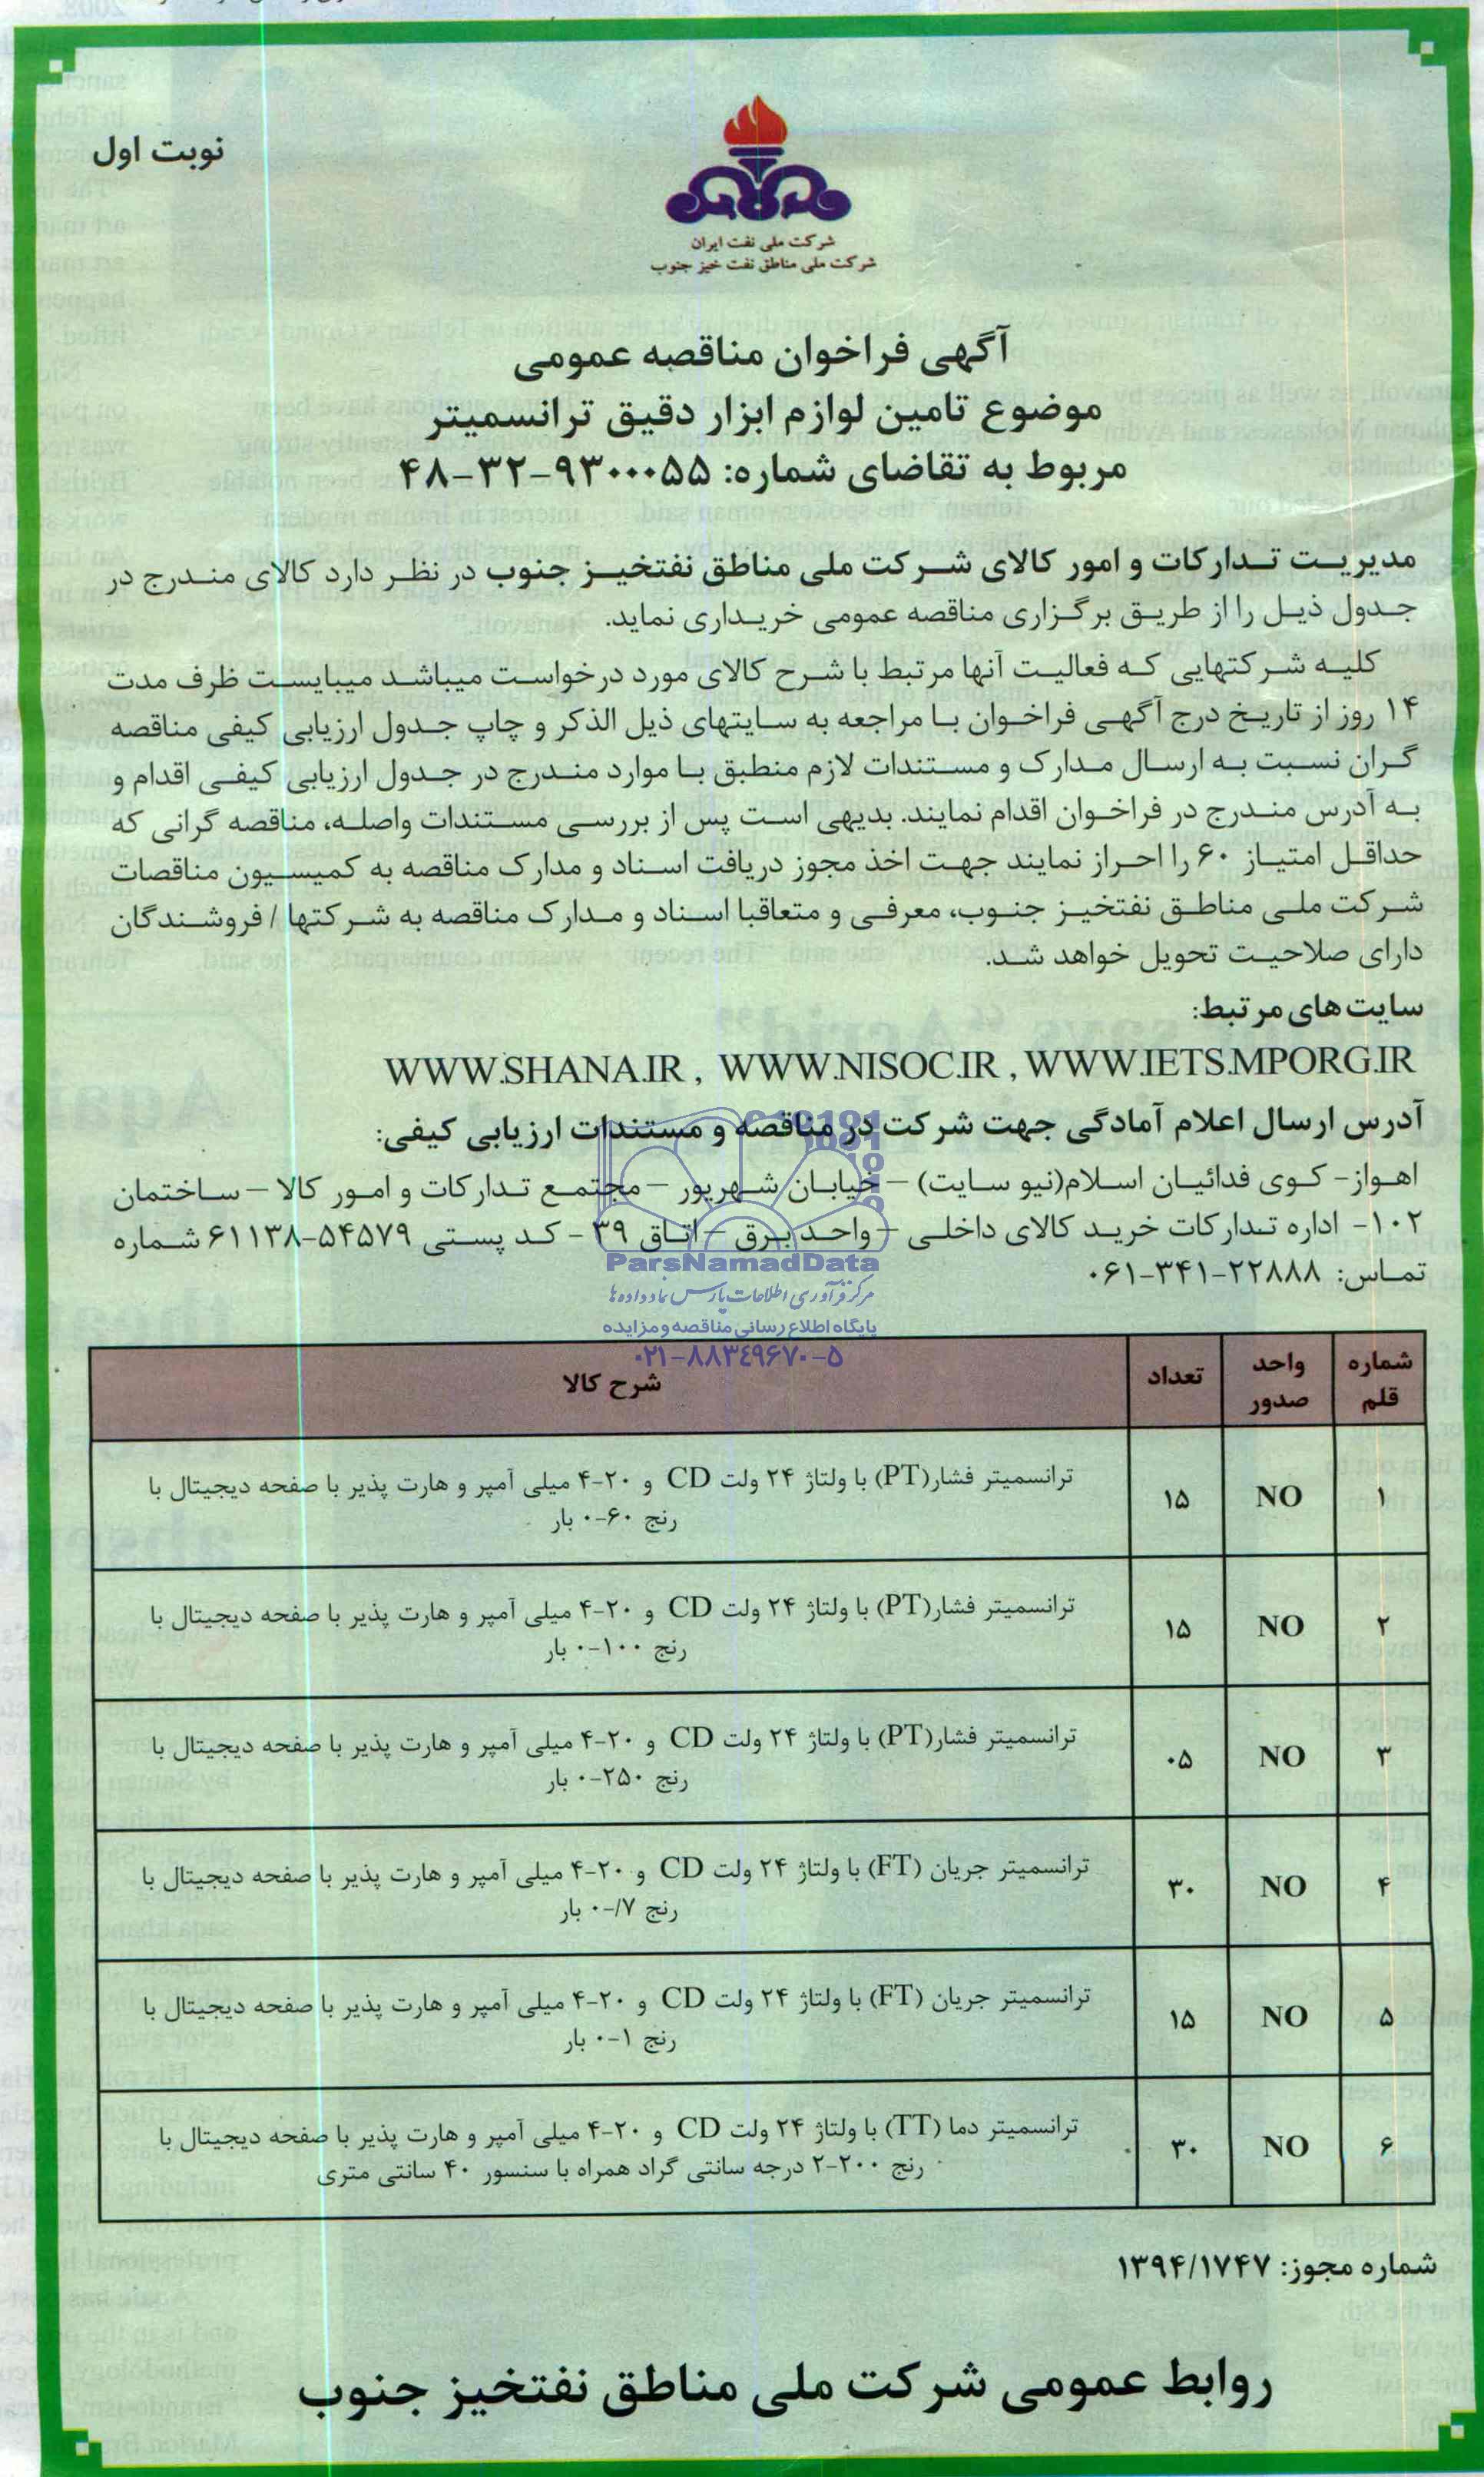 نوبت اول
شرکت ملی نفت ایران
شرکت ملی مناطق نفت خیز جنوب
آگهی فراخوان مناقصه عمومی
موضوع تامین لوازم ابزار دقیق ترانسمیتر
مربوط به تقاضای شماره: ۹۳۰۰۰۵۵-۳۲-۴۸
مدیریت تدارکات و امور کالای شرکت ملی مناطق نفتخیز جنوب در نظر دارد کالای مندرج در
جدول ذیل را از طریق برگزاری مناقصه عمومی خریداری نماید.
کلیه شرکتهایی که فعالیت آنها مرتبط با شرح کالای مورد درخواست میباشد میبایست ظرف مدت
۱۴ روز از تاریخ درج آگهی فراخوان با مراجعه به سایتهای ذیل الذکر و چاپ جدول ارزیابی کیفی مناقصه
گران نسبت به ارسال مدارک و مستندات لازم منطبق با موارد مندرج در جدول ارزیابی کیفی اقدام و
به آدرس مندرج در فراخوان اقدام نمایند. بدیهی است پس از بررسی مستندات واصله، مناقصه گرانی که
حداقل امتیاز ۶۰ را احراز نمایند جهت اخذ مجوز دریافت اسناد و مدارک مناقصه به کمیسیون مناقصات
شرکت ملی مناطق نفتخیز جنوب، معرفی و متعاقبا اسناد و مدارک مناقصه به شرکتها / فروشندگان
دارای صلاحیت تحویل خواهد شد.
سایت های مرتبط:
WWW.SHANA.IR , WWW.NISOC.IR , WWW.IETS.MPORG.IR
آدرس ارسال اعلام آمادگی جهت شرکت در مناقصه و مستندات ارزیابی کیفی:
اهواز- کوی فدائیان اسلام(نیو سایت) – خیابان شهریور – مجتمع تدارکات و امور کالا – ساختمان
۱۰۲- اداره تدارکات خرید کالای داخلی – واحد برق – اتاق ۳۹ - کد پستی ۵۴۵۷۹-۶۱۱۳۸ شماره
تماس: ۲۲۸۸۸-۳۴۱-۰۶۱
ParsNamadData
مرکز فرآوری اطلاعات پارس نماد داده ها
پایگاه اطلاع رسانی مناقصه و مزایده
۰۲۱-۸۸۳۴۹۶۷۰-۵
شماره قلم | واحد صدور | تعداد | شرح کالا
۱ | NO | ۱۵ | ترانسمیتر فشار(PT) با ولتاژ ۲۴ ولت CD و ۲۰-۴ میلی آمپر و هارت پذیر با صفحه دیجیتال با
رنج ۶۰-۰ بار
۲ | NO | ۱۵ | ترانسمیتر فشار(PT) با ولتاژ ۲۴ ولت CD و ۲۰-۴ میلی آمپر و هارت پذیر با صفحه دیجیتال با
رنج ۱۰۰-۰ بار
۳ | NO | ۰۵ | ترانسمیتر فشار(PT) با ولتاژ ۲۴ ولت CD و ۲۰-۴ میلی آمپر و هارت پذیر با صفحه دیجیتال با
رنج ۲۵۰-۰ بار
۴ | NO | ۳۰ | ترانسمیتر جریان (FT) با ولتاژ ۲۴ ولت CD و ۲۰-۴ میلی آمپر و هارت پذیر با صفحه دیجیتال با
رنج ۷/-۰ بار
۵ | NO | ۱۵ | ترانسمیتر جریان (FT) با ولتاژ ۲۴ ولت CD و ۲۰-۴ میلی آمپر و هارت پذیر با صفحه دیجیتال با
رنج ۱-۰ بار
۶ | NO | ۳۰ | ترانسمیتر دما (TT) با ولتاژ ۲۴ ولت CD و ۲۰-۴ میلی آمپر و هارت پذیر با صفحه دیجیتال با
رنج ۲۰۰-۲ درجه سانتی گراد همراه با سنسور ۴۰ سانتی متری
شماره مجوز: ۱۳۹۴/۱۷۴۷
روابط عمومی شرکت ملی مناطق نفتخیز جنوب